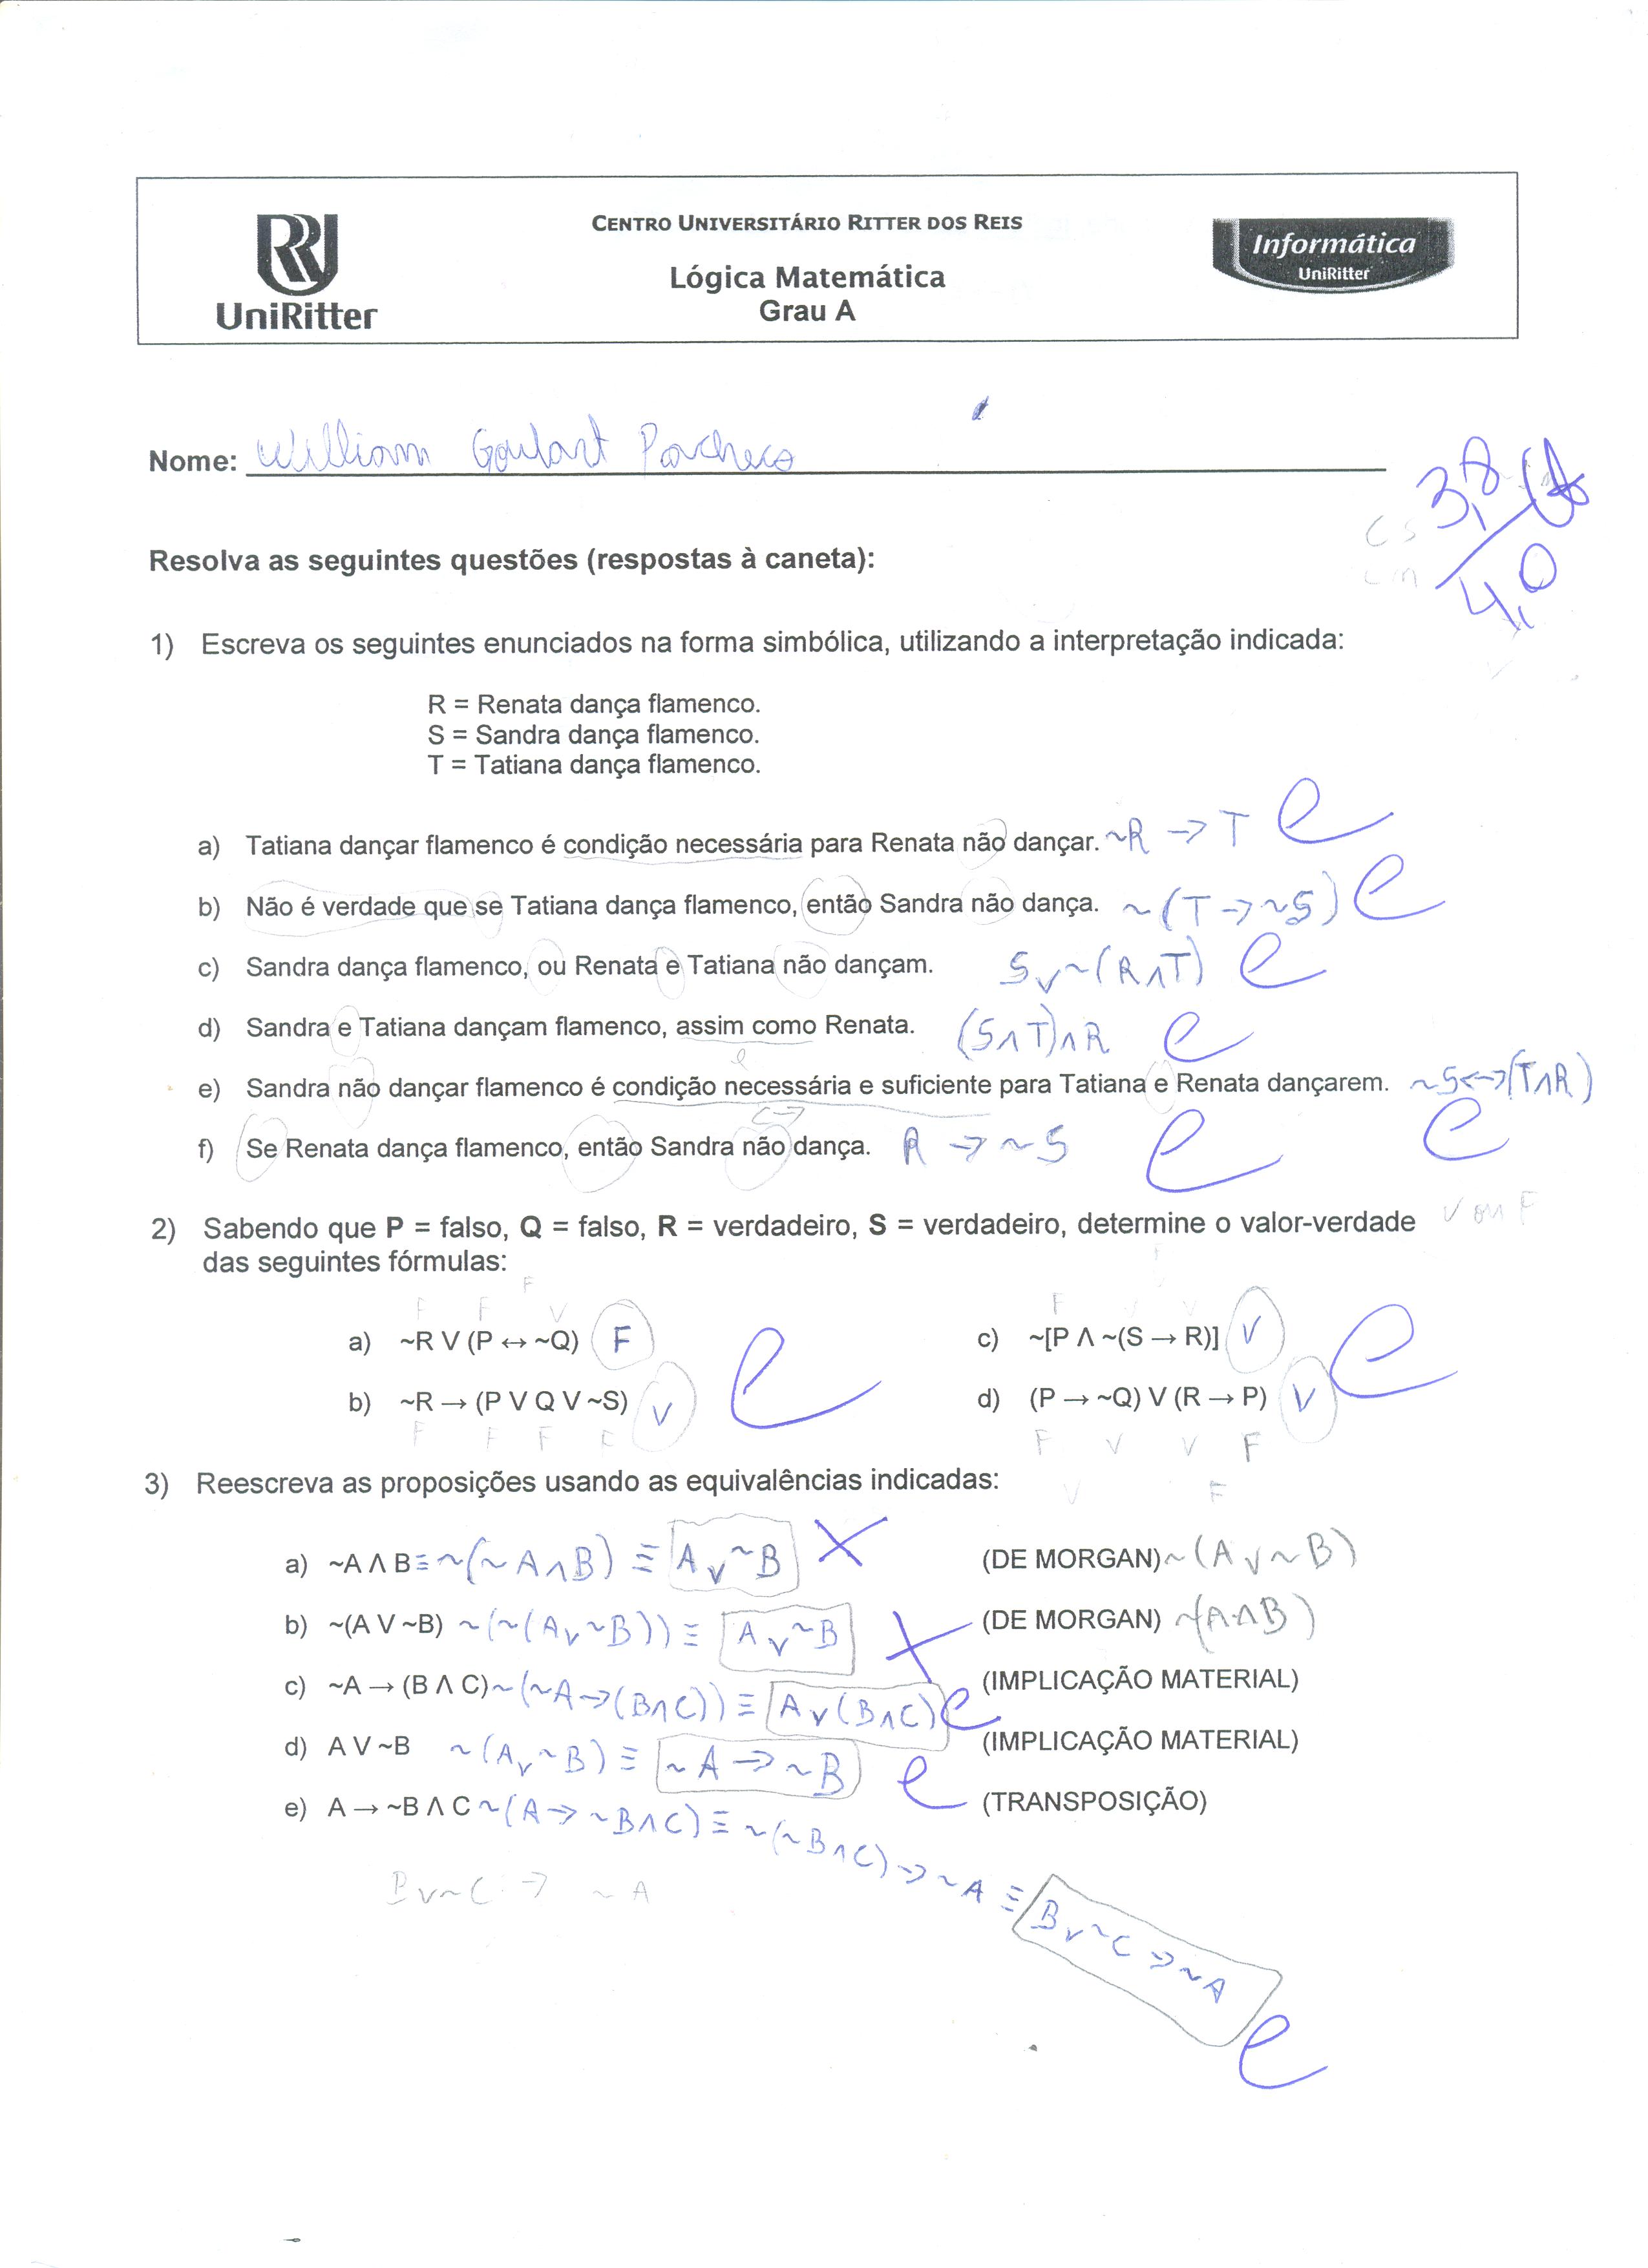 UniRitter
CENTRO UNIVERSITÁRIO RITTER DOS REIS
Lógica Matemática
Grau A
Informática
UniRitter
Nome: William Goulart Pacheco
3,8
4,0
Resolva as seguintes questões (respostas à caneta):
1) Escreva os seguintes enunciados na forma simbólica, utilizando a interpretação indicada:
R = Renata dança flamenco.
S = Sandra dança flamenco.
T = Tatiana dança flamenco.
a) Tatiana dançar flamenco é condição necessária para Renata não dançar. ~R → T
b) Não é verdade que se Tatiana dança flamenco, então Sandra não dança. ~(T → ~S)
c) Sandra dança flamenco, ou Renata e Tatiana não dançam. S v ~(R ∧ T)
d) Sandra e Tatiana dançam flamenco, assim como Renata. (S ∧ T) ∧ R
e
e) Sandra não dançar flamenco é condição necessária e suficiente para Tatiana e Renata dançarem. ~S <-> (T ∧ R)
<->
f) Se Renata dança flamenco, então Sandra não dança. R → ~S
2) Sabendo que P = falso, Q = falso, R = verdadeiro, S = verdadeiro, determine o valor-verdade V ou F
das seguintes fórmulas:
F
F F V
F V V
a) ~R V (P ↔ ~Q) F
c) ~[P Λ ~(S → R)] V
b) ~R → (P V Q V ~S) V
d) (P → ~Q) V (R → P) V
F F F F
F V V F
V F
3) Reescreva as proposições usando as equivalências indicadas:
a) ~A Λ B ≡ ~(~A ∧ B) ≡ A v ~B (DE MORGAN) ~(A v ~B)
b) ~(A V ~B) ~(~(A v ~B)) ≡ A v ~B (DE MORGAN) ~(A ∧ B)
c) ~A → (B Λ C) ~(~A → (B ∧ C)) ≡ A v (B ∧ C) (IMPLICAÇÃO MATERIAL)
d) A V ~B ~(A v ~B) ≡ ~A → ~B (IMPLICAÇÃO MATERIAL)
e) A → ~B Λ C ~(A → ~B ∧ C) ≡ ~(~B ∧ C) → ~A ≡ B v ~C → ~A (TRANSPOSIÇÃO)
B v ~C → ~A